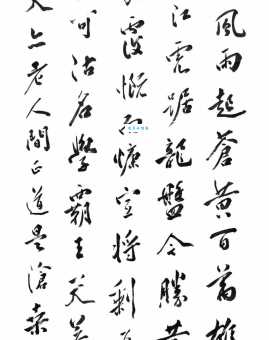 風雨起蒼黄百萬雄
江虎踞龍盤今勝昔
覆慨而慷宜將剩
可沽名學霸王天若
天亦老人間正道是滄桑